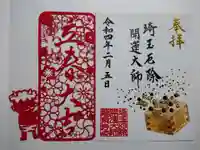 奉拝
埼玉厄除
開運大師
令和四年二月五日
立春大吉